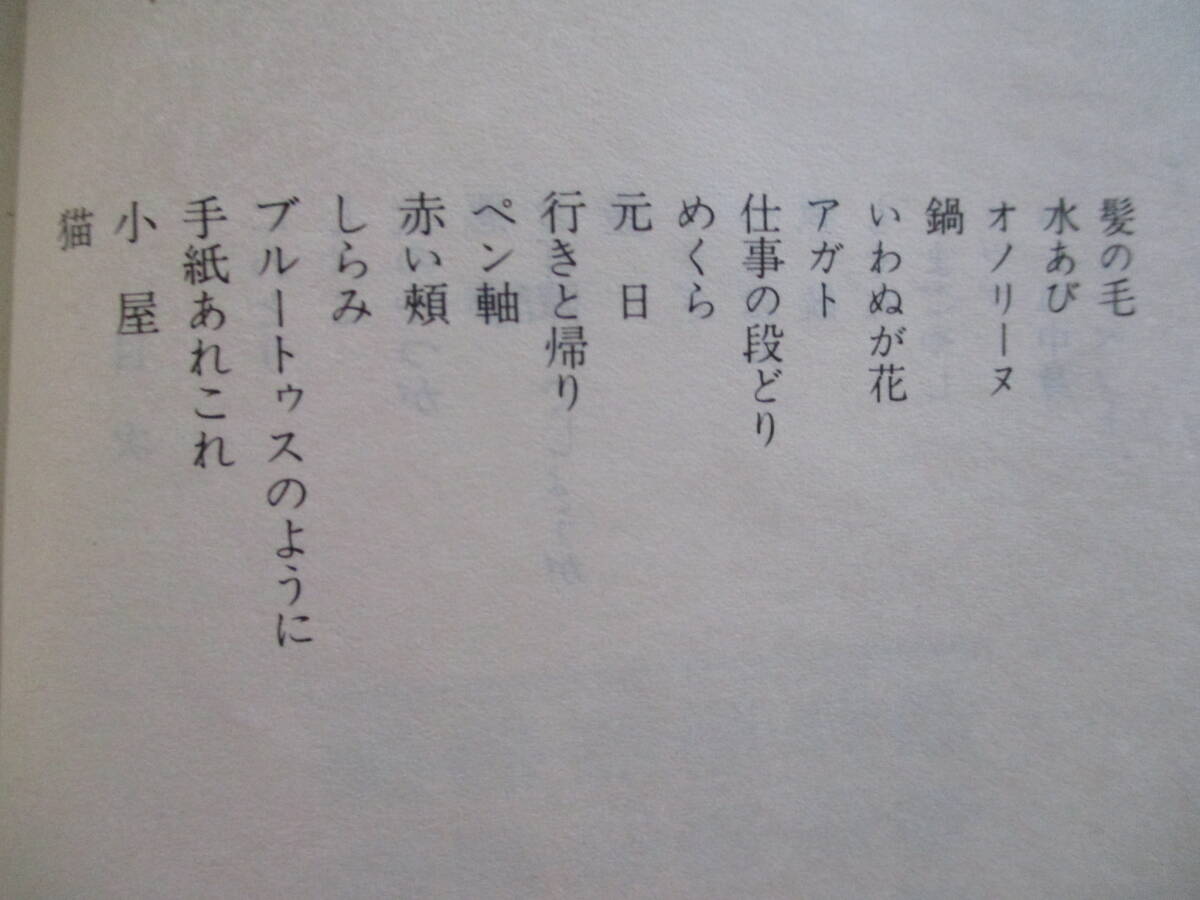 髪の毛
水あび
オノリーヌ
鍋
いわぬが花
アガト
仕事の段どり
めくら
元日
行きと帰り
ペン軸
赤い頰
しらみ
ブルートゥスのように
手紙あれこれ
小屋
猫